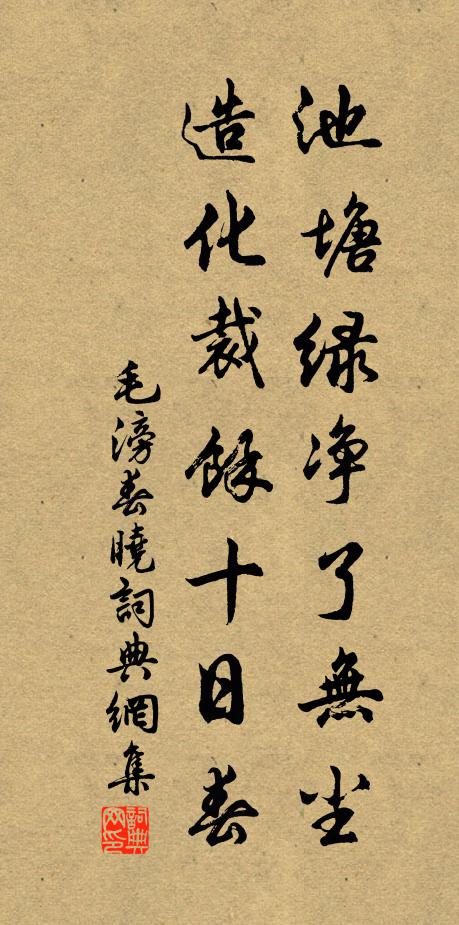 池塘绿净了無尘
造化裁餘十日春
毛滂春曉詞典網集
詞典网印